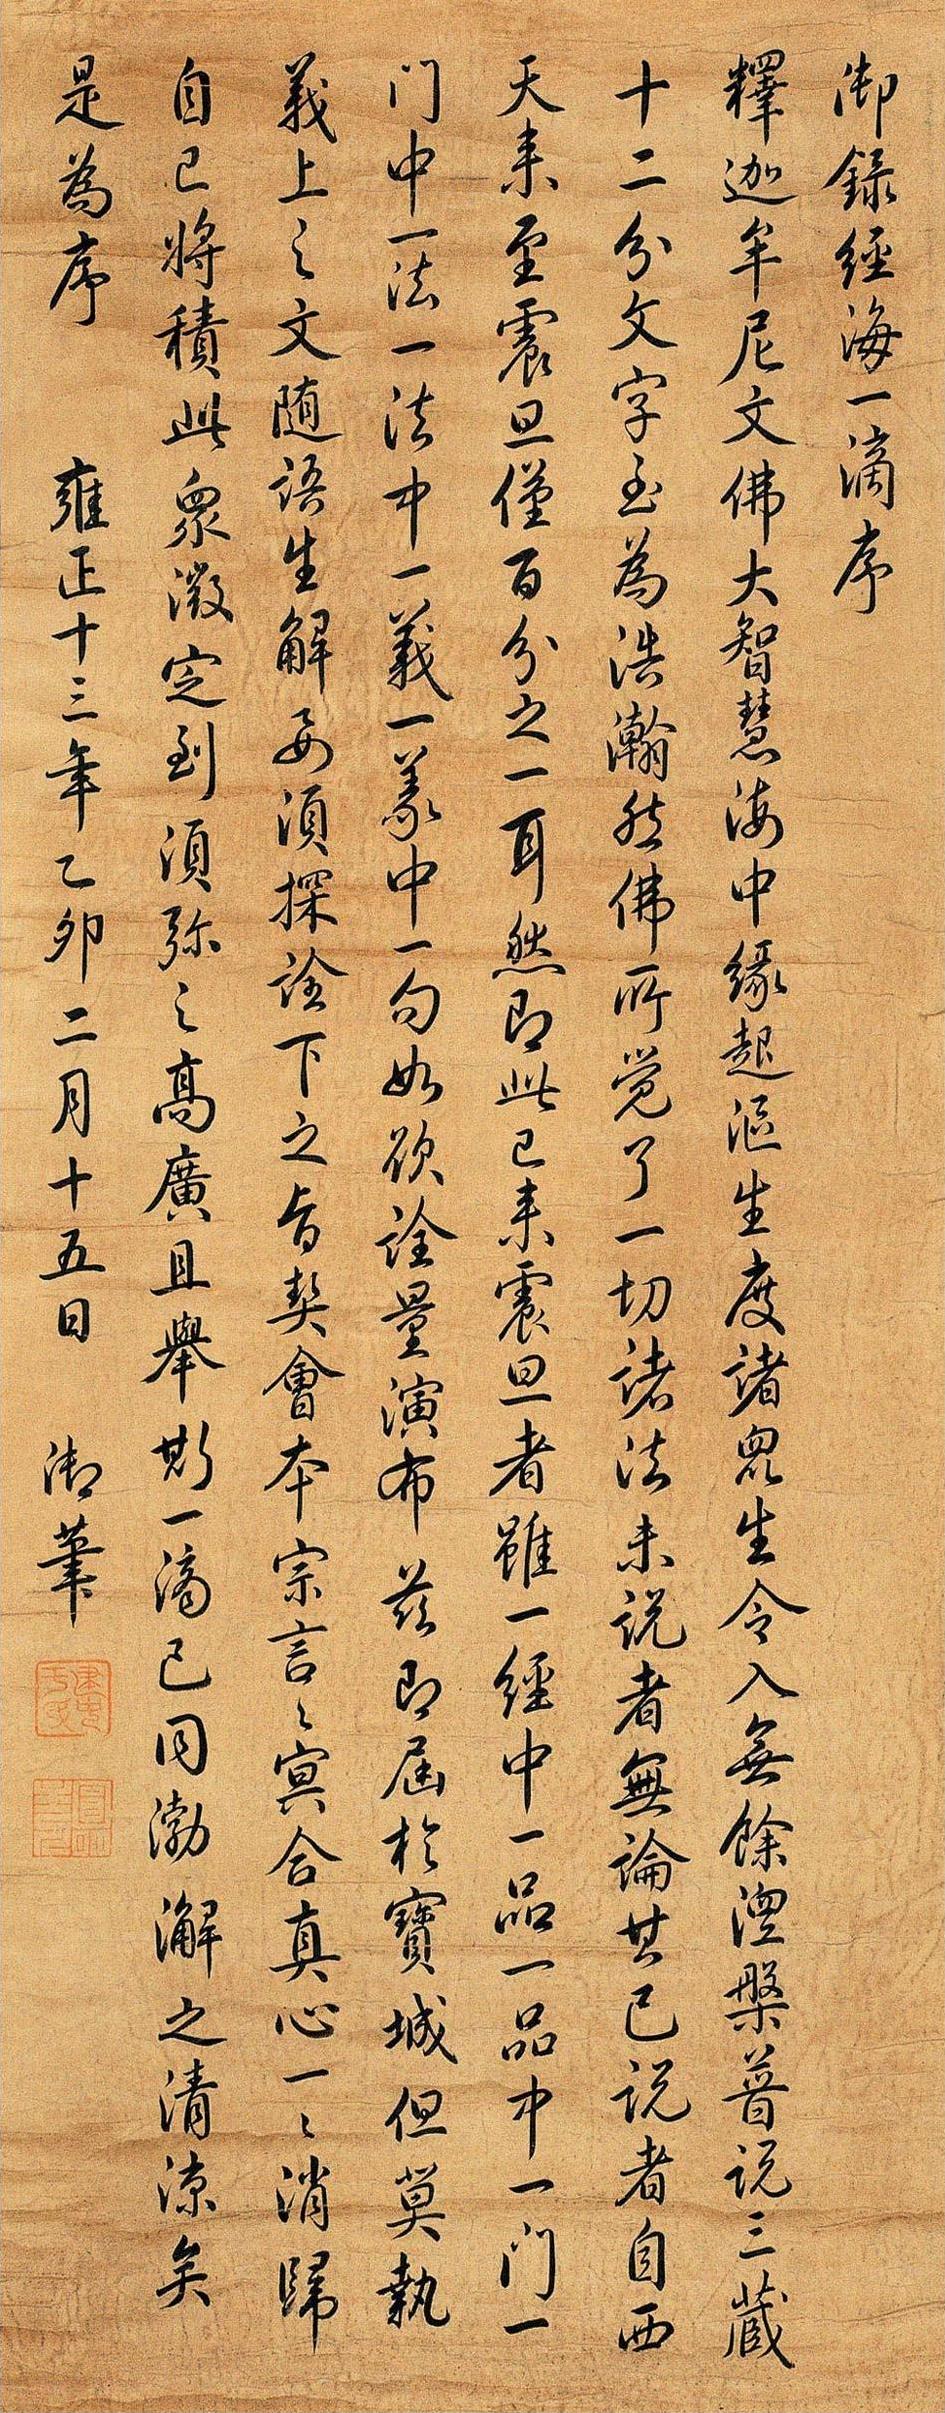 御錄經海一滴序
釋迦牟尼文佛大智慧海中緣起漚生度諸眾生令入無餘涅槃普說三藏
十二分文字至為浩瀚然佛所覺了一切諸法未說者無論其已說者自西
天来至震旦僅百分之一耳然即此已来震旦者雖一經中一品一品中一门一
门中一法一法中一義一義中一句如欲詮量演布茲即屆於寶城但莫執
義上之文随語生解要須探詮下之旨契會本宗言〻冥合真心一〻消歸
自己將積此眾激定到須弥之高廣且舉斯一滴已同渤澥之清涼矣
是為序 雍正十三年乙卯二月十五日 御筆